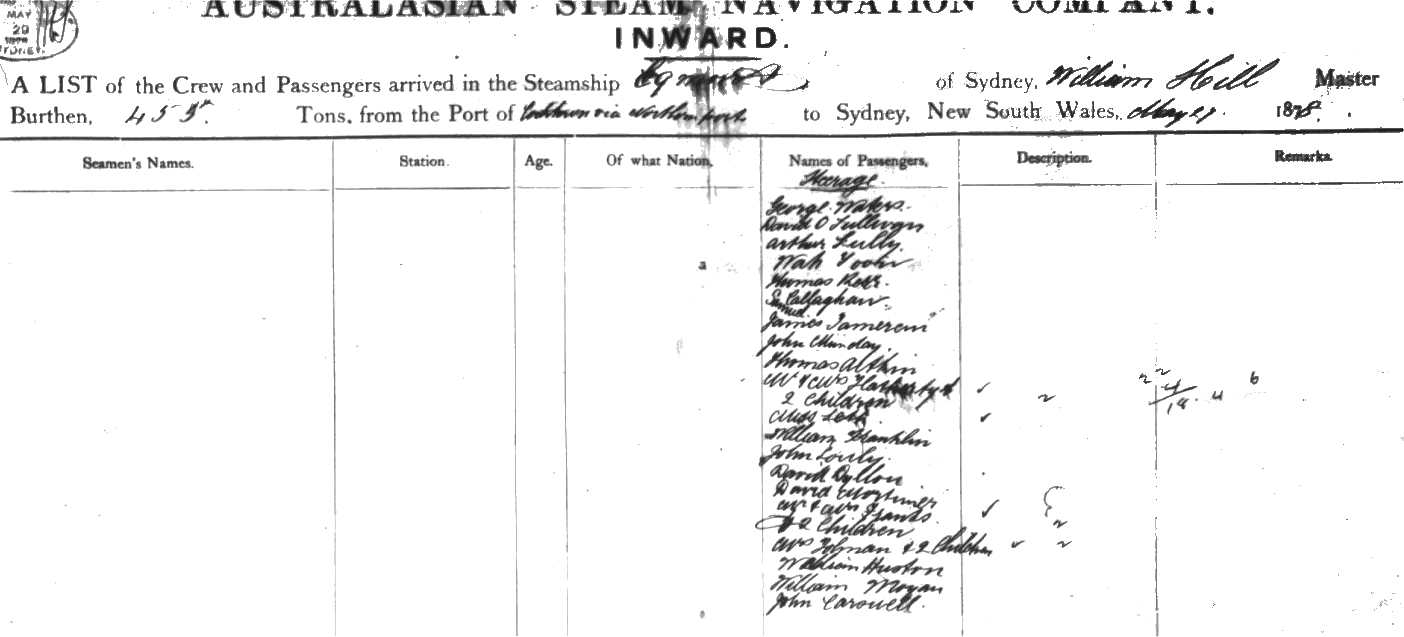 MAY
29
1878
SYDNEY
AUSTRALASIAN STEAM NAVIGATION COMPANY.
INWARD.
A LIST of the Crew and Passengers arrived in the Steamship Egmont of Sydney, William Hill Master
Burthen, 455 Tons, from the Port of Cooktown via Northern ports to Sydney, New South Wales, May 27 1878.
Seamen's Names. Station. Age. Of what Nation. Names of Passengers. Description. Remarks.
Steerage.
George Waters
David O Sullivan
Arthur Lully.
Wah
Thomas
Samuel Callaghan
James
John Munday.
Thomas
Mr & Mrs &
2 Children 2
Miss
William Franklin
John
David Dyllon
David Mortimer
Mr & Mrs
& 2 Children
Mrs Tolman & 2 Children
William Huston
William Mogan
John Carowell.
22
4
18. 4
6